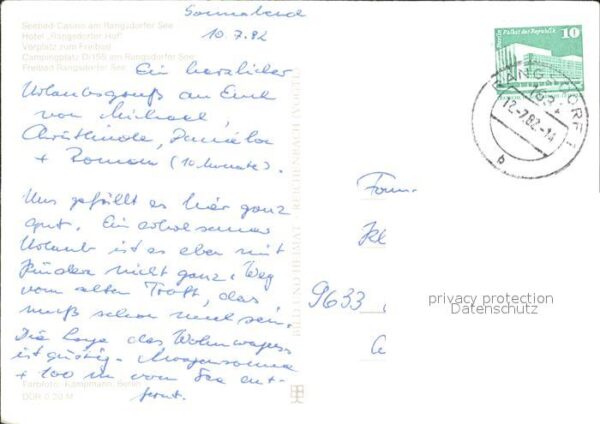 Seebad-Casino am Rangsdorfer See
Hotel „Rangsdorfer Hof“
Vorplatz zum Freibad
Campingplatz D/155 am Rangsdorfer See
Freibad Rangsdorfer See
Sonnabend
10.7.82
Ein herzlicher
Urlaubsgruß an Euch
von Michael,
Daniela
+ Roman (10 Monate).
Uns gefällt es hier ganz
gut. Ein erholsamer
Urlaub ist es aber mit
Kindern nicht ganz. Weg
vom alten Trott, das
muß schon mal sein.
Die Lage des Wohnwagens
ist günstig - Morgensonne
+ 100 m vom See ent-
fernt.
Farbfoto: Kampmann, Berlin
DDR 0,20 M
BILD UND HEIMAT REICHENBACH (VOGTL)
Berlin, Palast der Republik
10
DDR
RANGSDORF 1
1634
12.7.82-14
b
Fam.
Kl
9633
privacy protection
Datenschutz